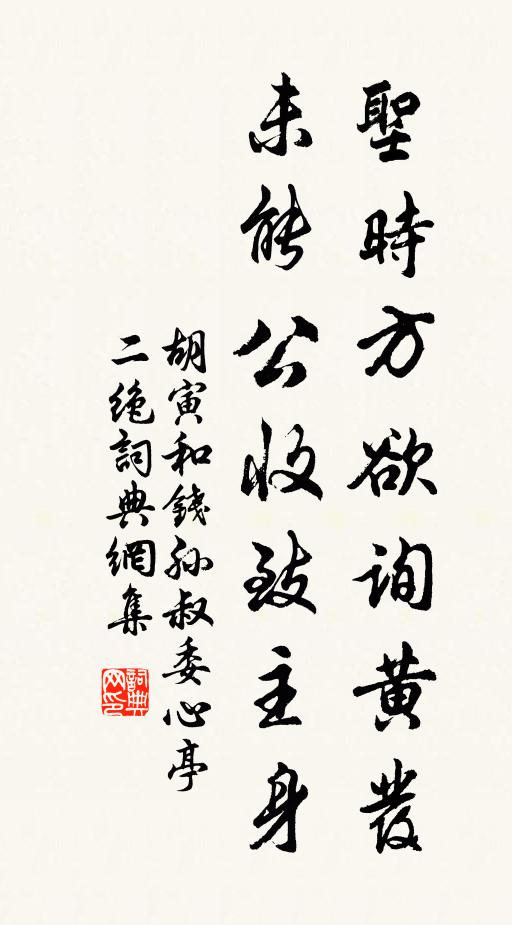 聖時方欲詢黃發
未能公收致主身
胡寅和錢孙叔委心亭
二绝詞典網集
詞典网印